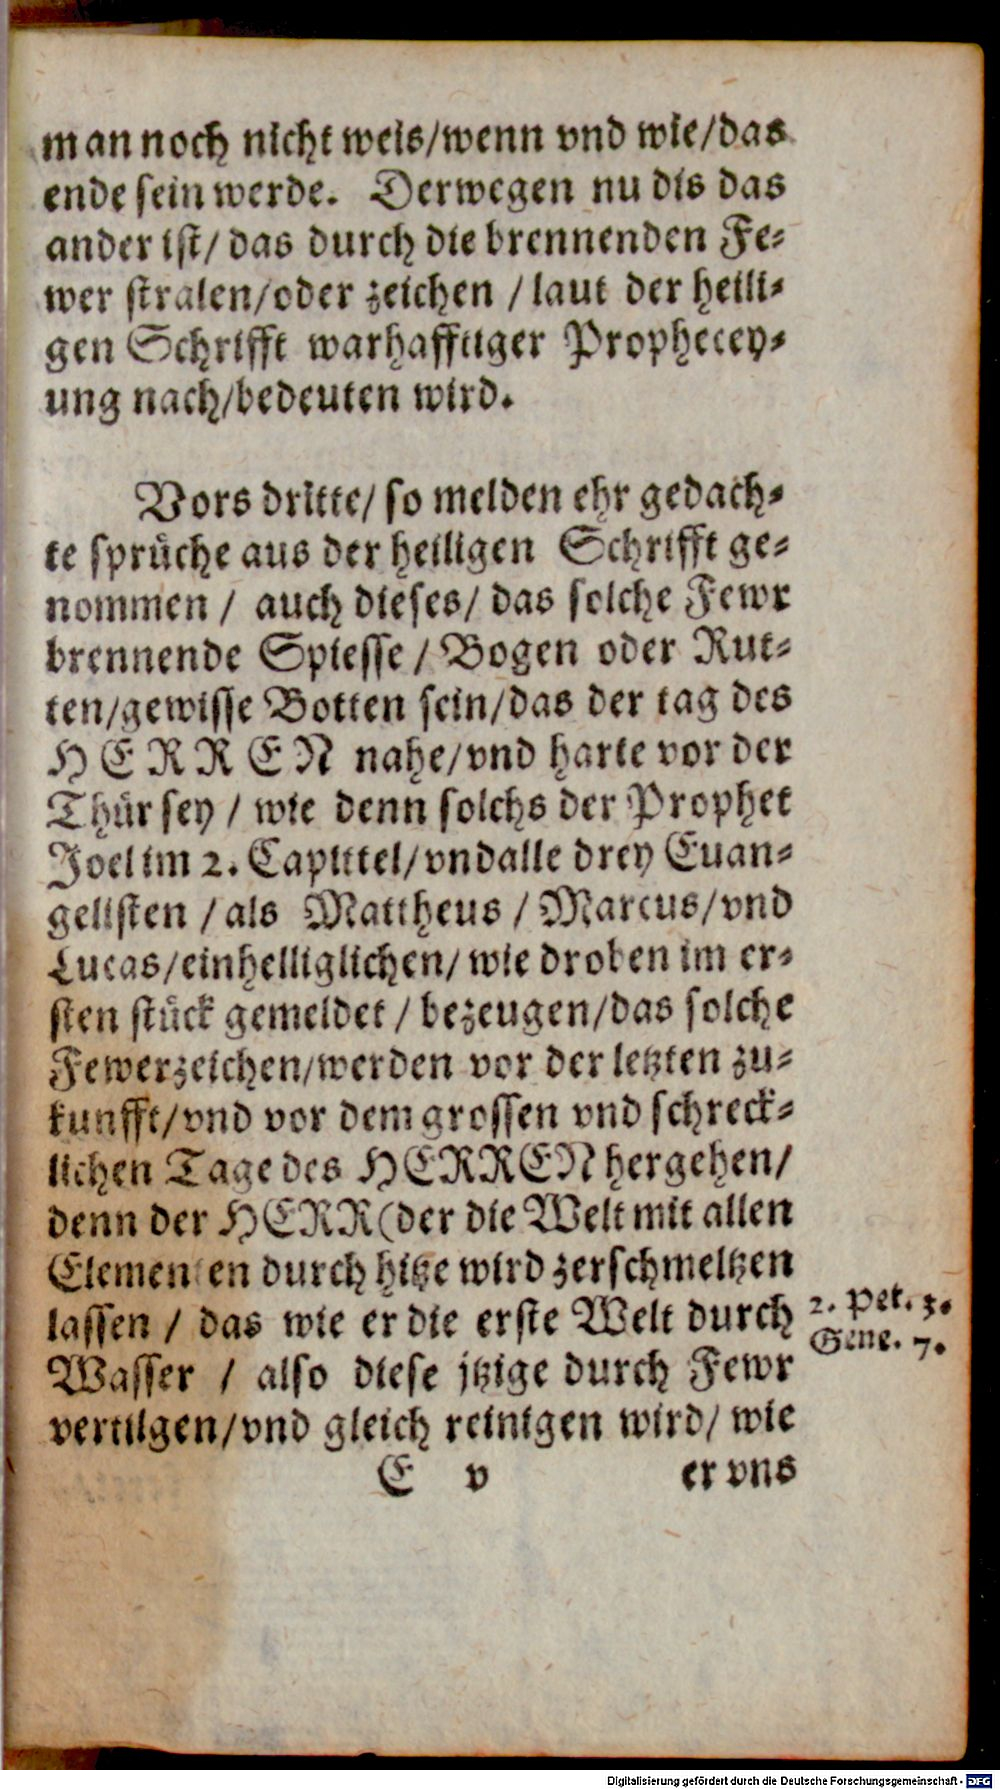 man noch nicht weis/wenn vnd wie/das
ende sein werde. Derwegen nu dis das
ander ist/ das durch die brennenden Fe⸗
wer stralen/oder zeichen / laut der heili⸗
gen Schrifft warhafftiger Prophecey⸗
ung nach/bedeuten wird.
Vors dritte/ so melden ehr gedach⸗
te sprüche aus der heiligen Schrifft ge⸗
nommen / auch dieses/ das solche Fewr
brennende Spiesse / Bogen oder Rut⸗
ten/gewisse Botten sein/das der tag des
HERREN nahe/vnd harte vor der
Thür sey / wie denn solchs der Prophet
Joel im 2. Capittel/vnd alle drey Euan⸗
gelisten / als Mattheus / Marcus/vnd
Lucas/einhelliglichen/ wie droben im er⸗
sten stück gemeldet / bezeugen/das solche
Fewerzeichen/werden vor der letzten zu⸗
kunfft/vnd vor dem grossen vnd schreck⸗
lichen Tage des HERREN hergehen/
denn der HERR (der die Welt mit allen
Elementen durch hitze wird zerschmeltzen
lassen / das wie er die erste Welt durch
2. Pet. 3.
Gene. 7.
Wasser / also diese jtzige durch Fewr
vertilgen/vnd gleich reinigen wird/ wie
E v er vns
Digitalisierung gefördert durch die Deutsche Forschungsgemeinschaft - DFG